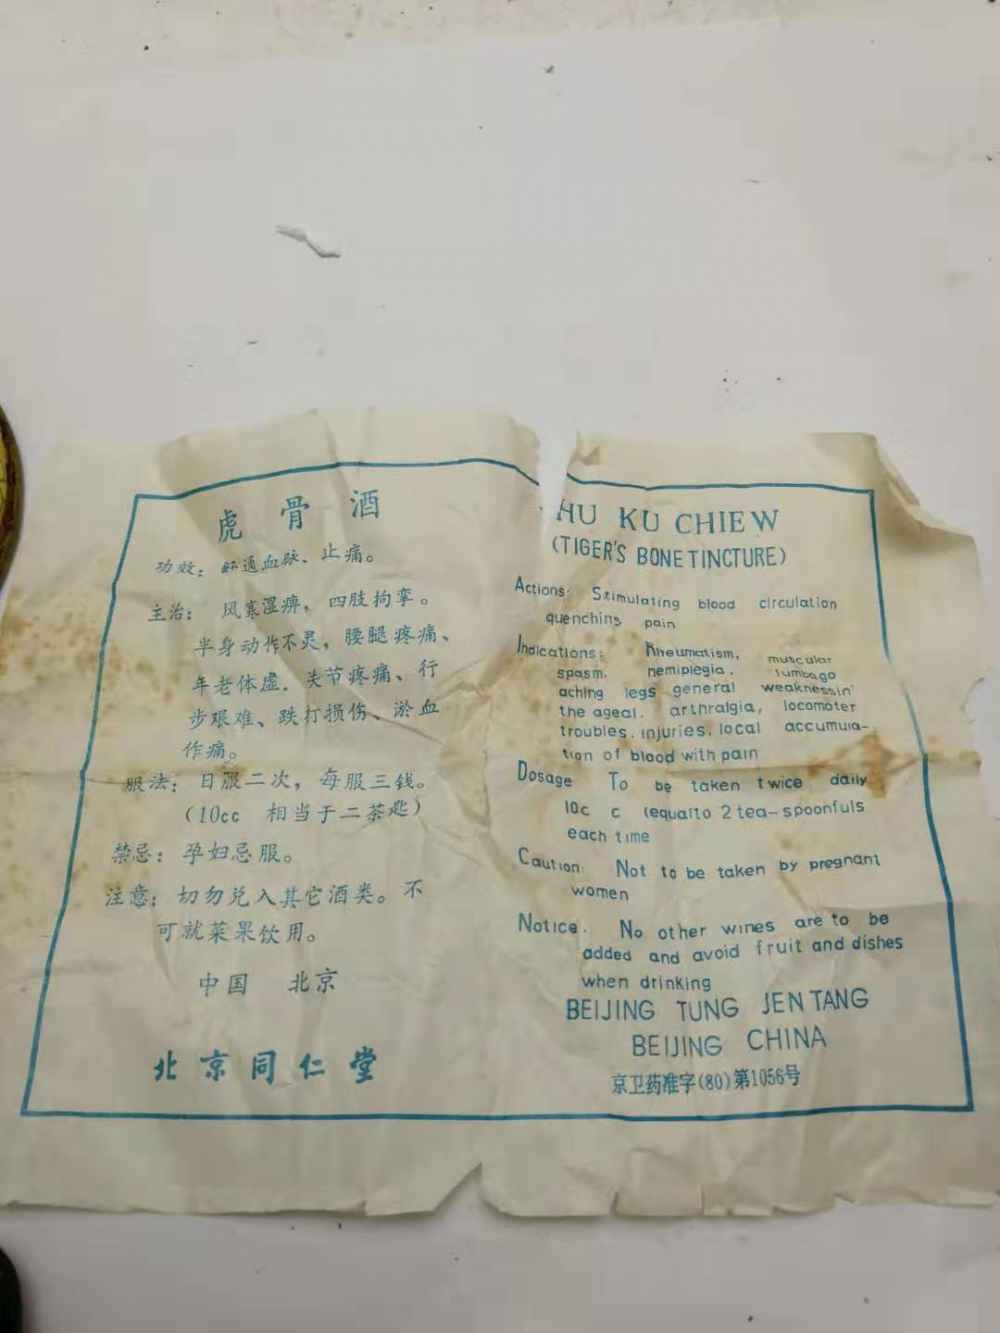 虎骨酒
功效：舒通血脉、止痛。
主治：风寒湿痹，四肢拘挛。
半身动作不灵，腰腿疼痛、
年老体虚．关节疼痛、行
步艰难、跌打损伤、淤血
作痛。
服法：日服二次，每服三钱。
（10cc 相当于二茶匙）
禁忌：孕妇忌服。
注意：切勿兑入其它酒类。不
可就菜果饮用。
中国 北京
北京同仁堂
HU KU CHIEW
(TIGER'S BONE TINCTURE)
Actions: Stimulating blood circulation
quenching pain
Indications: Rheumatism, muscular
spasm. hemiplegia. lumbago
aching legs general weaknessin
the ageal. arthralgia, locomoter
troubles. injuries. local accumula-
tion of blood with pain
Dosage To be taken twice daily
10c c (equalto 2 tea-spoonfuls
each time
Caution: Not to be taken by pregnant
women
Notice. No other wines are to be
added and avoid fruit and dishes
when drinking
BEIJING TUNG JEN TANG
BEIJING CHINA
京卫药准字(80)第1056号